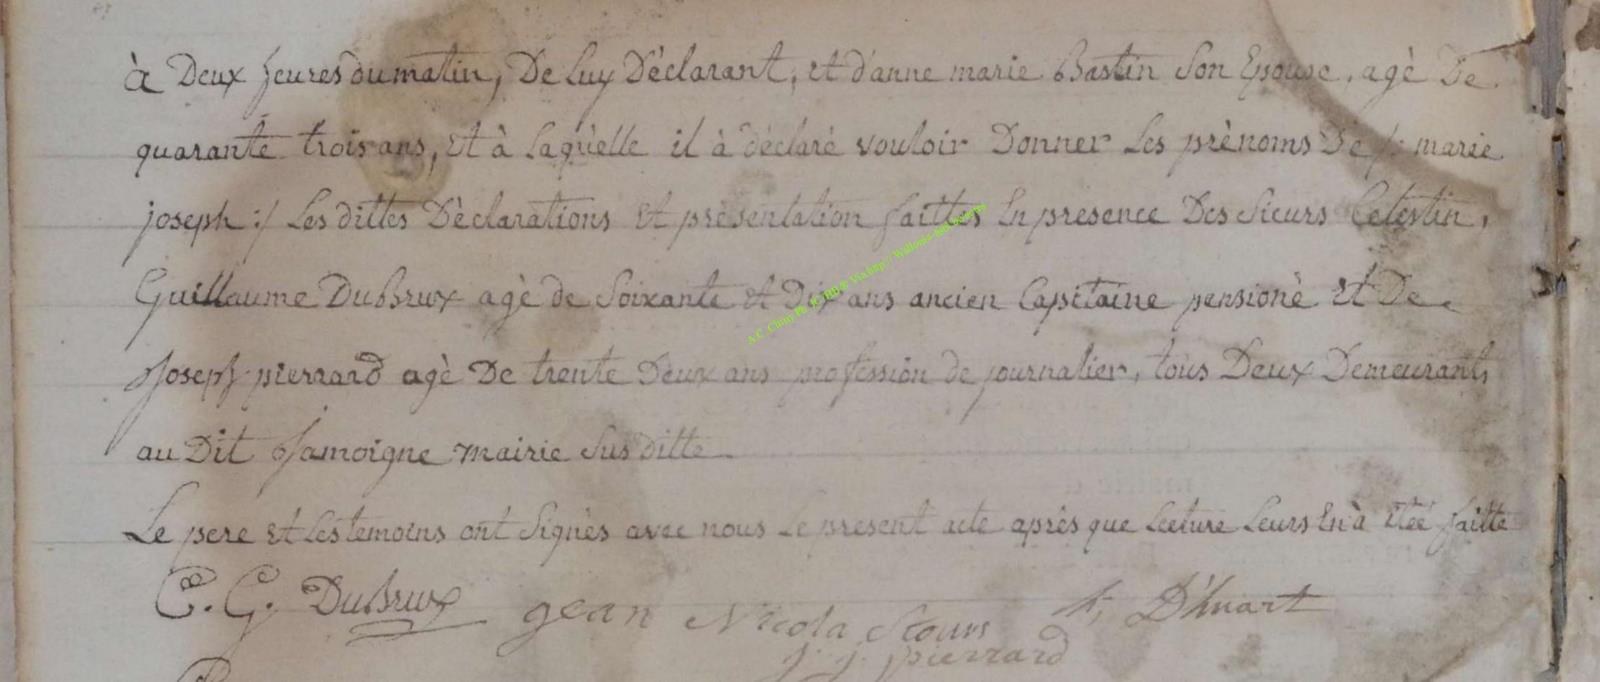 à Deux heures du matin, De luy Déclarant, et d'anne marie Bastin Son Epouse, agè De
quarante trois ans, et à laquèlle il à déclaré vouloir Donner Les prènoms De /: marie
joseph :/ Les dittes Dèclarations et présentation faittes En presence Des Sieurs Celestin,
Guillaume DuBrux agè de Soixante et Dix ans ancien Capitaine pensioné et De
Joseph pierrard agè De trente Deux ans profession de journalier, tous Deux Demeurants
au Dit Jamoigne mairie Sus ditte
Le pere et Les temoins ont Signès avec nous Le present acte après que Lecture Leurs En à étée faitte
C. G. DuBrux
Jean Nicola
D'huart
J. J. pierrard